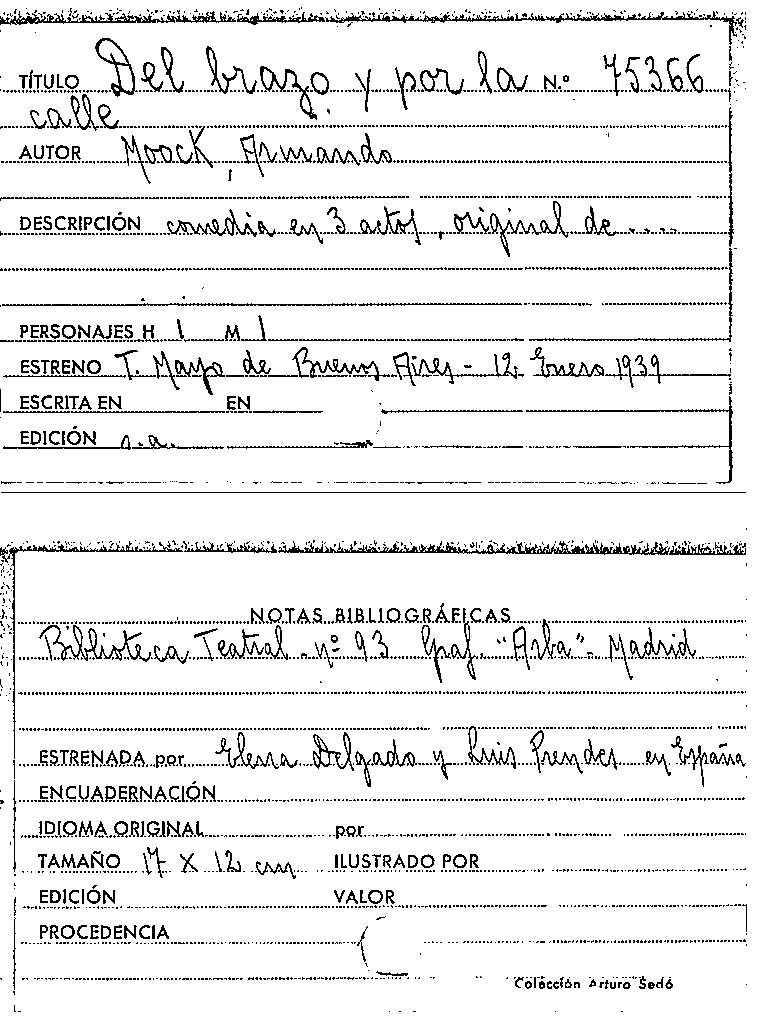 TÍTULO Del brazo y por la N.º 75366
calle
AUTOR Moock, Armando
DESCRIPCIÓN comedia en 3 actos, original de ....
PERSONAJES H 1 M 1
ESTRENO T. Mayo de Buenos Aires - 12 Enero 1939
ESCRITA EN EN
EDICIÓN s.a.
NOTAS BIBLIOGRÁFICAS
Biblioteca Teatral - nº 93 Graf. "Arba" - Madrid
ESTRENADA por Elena Delgado y Luis Prendes en España
ENCUADERNACIÓN
IDIOMA ORIGINAL por
TAMAÑO 17 X 12 cm ILUSTRADO POR
EDICIÓN VALOR
PROCEDENCIA
Colección Arturo Sedó